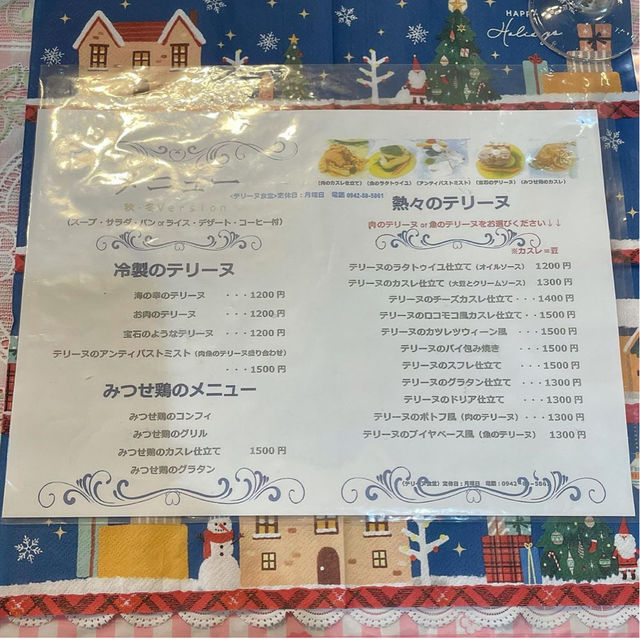 HAPPY
Holidays
メニュー
秋・冬Version
(スープ・サラダ・パン or ライス・デザート・コーヒー付)
冷製のテリーヌ
海の幸のテリーヌ ・・・1200円
お肉のテリーヌ ・・・1200円
宝石のようなテリーヌ ・・・1200円
テリーヌのアンティパストミスト (肉魚のテリーヌ盛り合わせ)
・・・1500円
みつせ鶏のメニュー
みつせ鶏のコンフィ
みつせ鶏のグリル
みつせ鶏のカスレ仕立て 1500円
みつせ鶏のグラタン
(肉のカスレ仕立て) (魚のラタトゥイユ) (アンティパストミスト) (宝石のテリーヌ) (みつせ鶏のカスレ)
<テリーヌ食堂>定休日:月曜日 電話 0942-88-5861
熱々のテリーヌ
肉のテリーヌ or 魚のテリーヌをお選びください↓↓
※カスレ=豆
テリーヌのラタトゥイユ仕立て (オイルソース) 1200円
テリーヌのカスレ仕立て (大豆とクリームソース) 1300円
テリーヌのチーズカスレ仕立て ・・・1400円
テリーヌのロコモコ風カスレ仕立て・・1500円
テリーヌのカツレツウィーン風 ・・・1500円
テリーヌのパイ包み焼き ・・・1500円
テリーヌのスフレ仕立て ・・・1500円
テリーヌのグラタン仕立て ・・・1300円
テリーヌのドリア仕立て ・・・1300円
テリーヌのポトフ風 (肉のテリーヌ) ・・・1300円
テリーヌのブイヤベース風 (魚のテリーヌ) 1300円
(テリーヌ食堂) 定休日:月曜日 電話:0942-88-5861